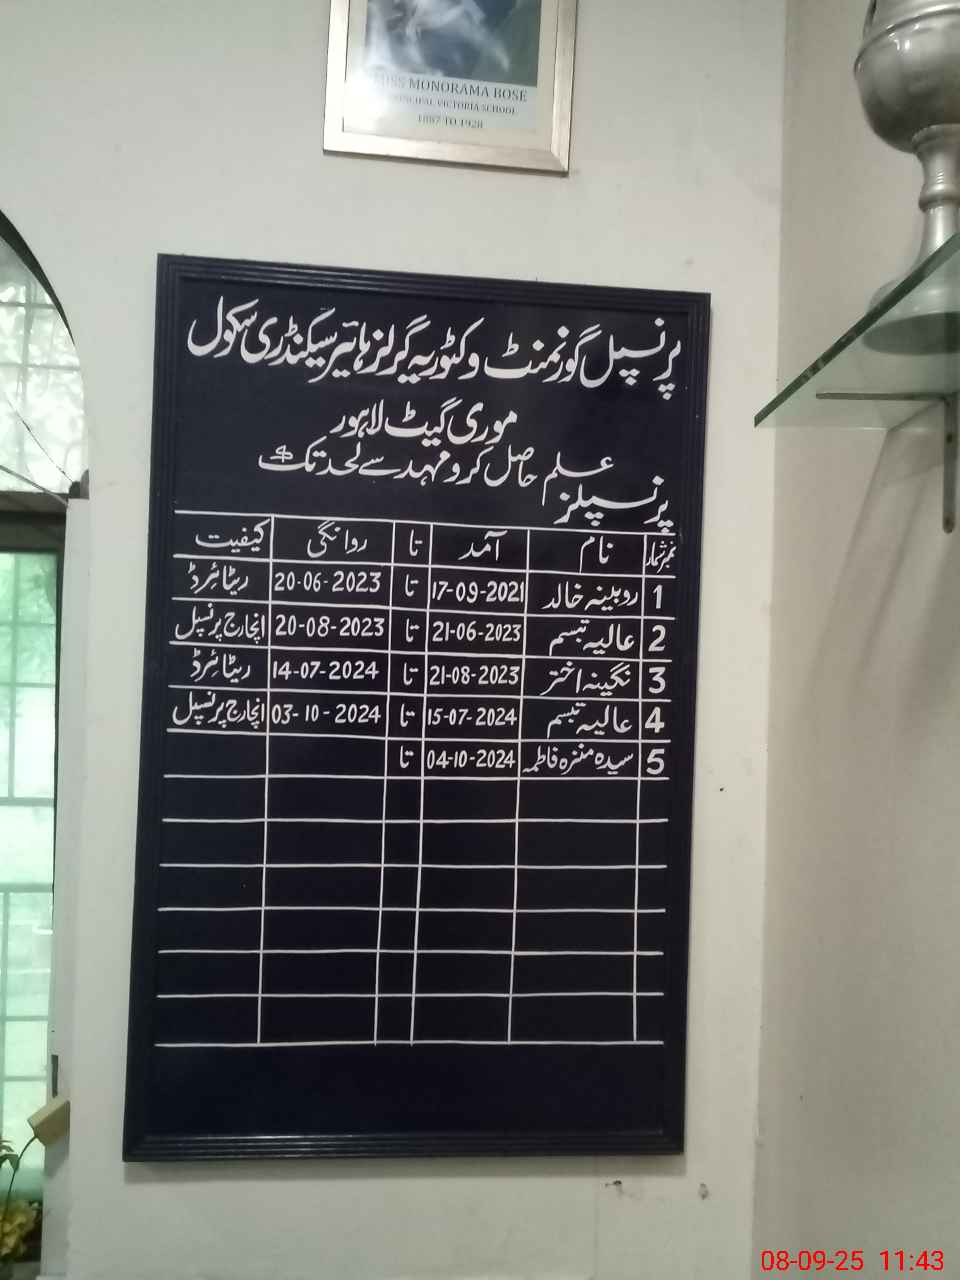 MISS MONORAMA BOSE
PRINCIPAL VICTORIA SCHOOL
1887 TO 1928
پرنسپل گورنمنٹ وکٹوریہ گرلز ہائیر سیکنڈری سکول
موری گیٹ لاہور
علم حاصل کرو مہد سے لحد تک
پرنسپلز
نمبر شمار نام آمد تا روانگی کیفیت
1 روبینہ خالد 17-09-2021 تا 20-06-2023 ریٹائرڈ
2 عالیہ تبسم 21-06-2023 تا 20-08-2023 انچارج پرنسپل
3 نگینہ اختر 21-08-2023 تا 14-07-2024 ریٹائرڈ
4 عالیہ تبسم 15-07-2024 تا 03-10-2024 انچارج پرنسپل
5 سیدہ منزہ فاطمہ 04-10-2024 تا
08-09-25 11:43